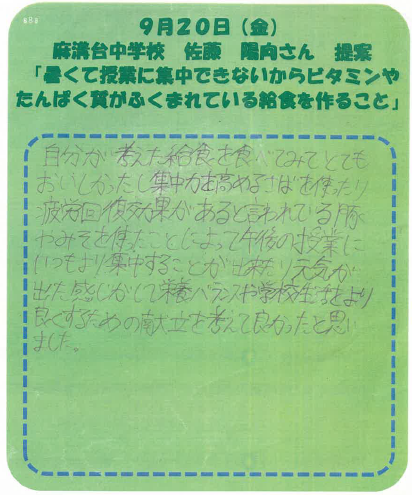 9月20日（金）
麻溝台中学校　佐藤　陽向さん　提案
「暑くて授業に集中できないからビタミンや
たんぱく質がふくまれている給食を作ること」
自分が考えた給食を食べてみてとても
おいしかったし集中力を高めるさばを使ったり
疲労回復効果があると言われている豚
やみそを使ったことによって午後の授業に
いつもより集中することが出来たり元気が
出た感じがして栄養バランスや学校生活をより
良くするための献立を考えて良かったと思い
ました。